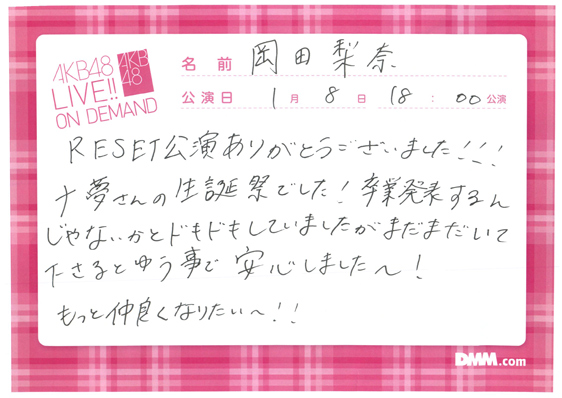 AKB48
LIVE!!
ON DEMAND
AKB
48
名前 岡田梨奈
公演日 1月8日 18:00公演
RESET公演ありがとうございました!!!
十夢さんの生誕祭でした!卒業発表するん
じゃないかとドモドモしていましたがまだまだいて
下さるとゆう事で安心しました〜!
もっと仲良くなりたい〜!!
DMM.com